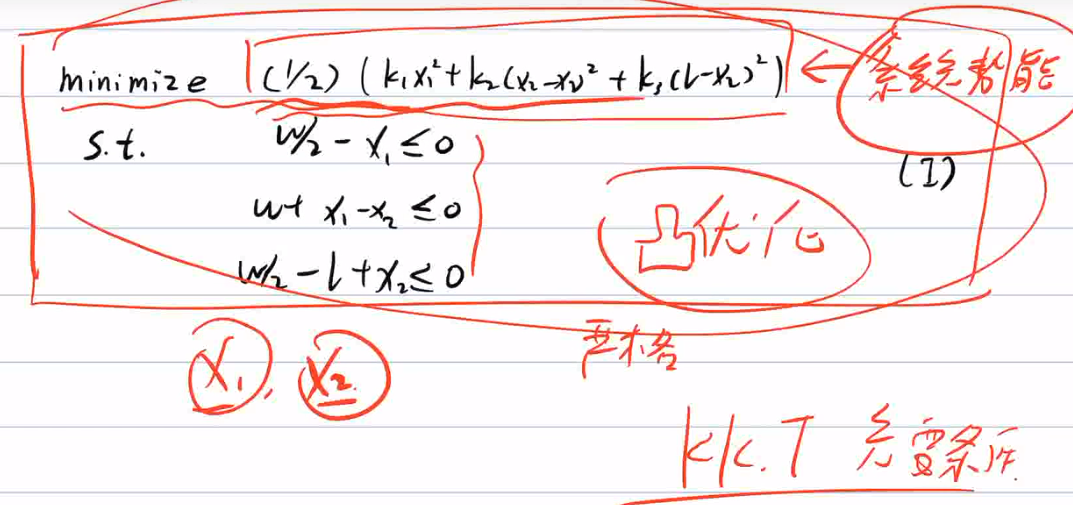 minimize (1/2) (k₁x₁²+k₂(x₂-x₁)²+k₃(l-x₂)²) ← 系统势能
s.t. w/2 - x₁ ≤ 0
(I)
w+x₁-x₂ ≤ 0
凸优化
w/2 - l + x₂ ≤ 0
严格
x₁, x₂
KK.T 充要条件